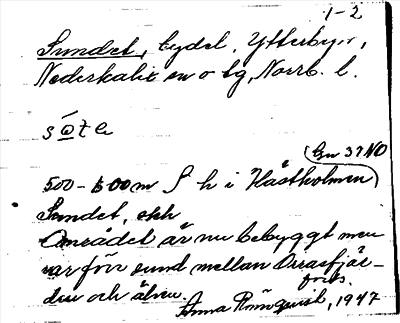 1-2
Sundet, bydel, Ytterbyn,
Nederkalix sn o tg, Norrb. l.
sα̱te
Gn 37 NO
500-600m S h i Hästholmen
Sundet, och
Området är nu bebyggt men
var förr sund mellan
den och älven.
forts.
Anna Rönnqvist, 1947